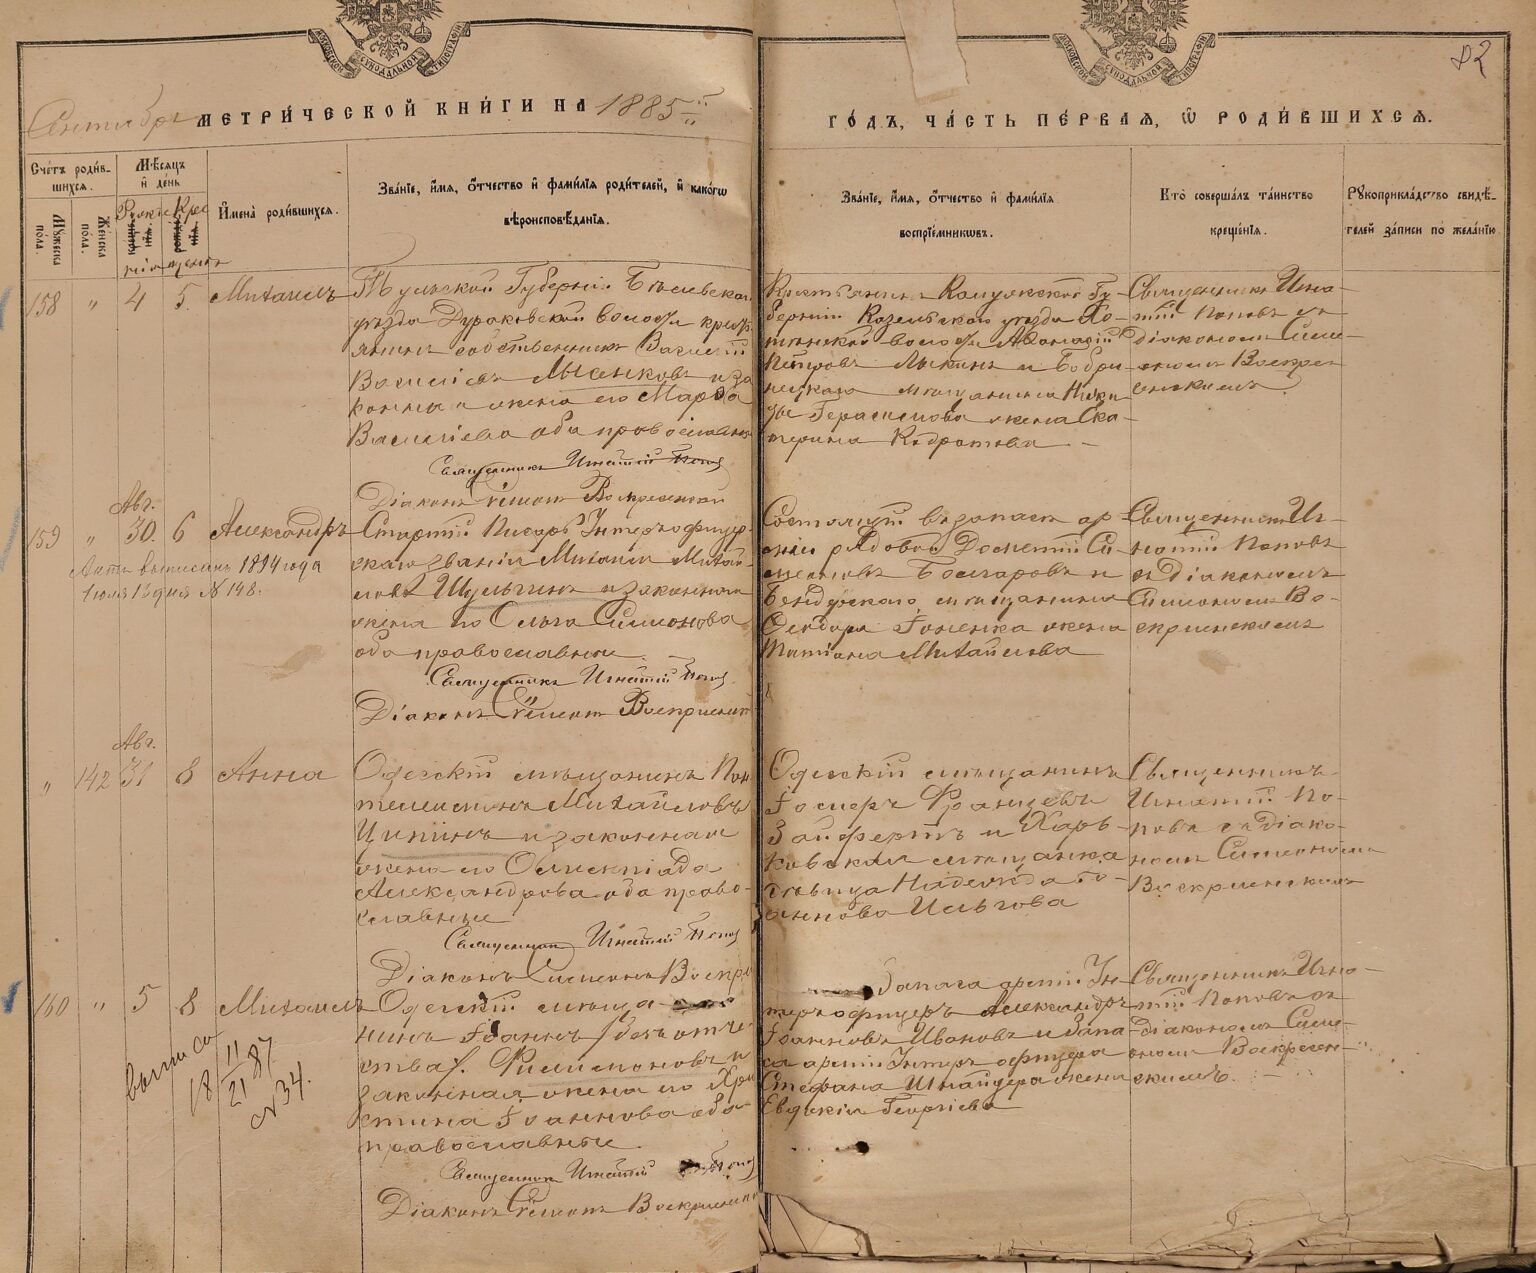 МОСКОВСКОЙ СѴНОДАЛЬНОЙ ТИПОГРАФІИ
МОСКОВСКОЙ СѴНОДАЛЬНОЙ ТИПОГРАФІИ
82
Сентябрь МЕТРИЧЕСКОЙ КНИГИ НА 1885
ГОДЪ, ЧАСТЬ ПЕРВАЯ, Ѡ РОДИВШИХСЯ.
Счетъ родив-
шихся.
Мужеска пола.
Женска пола.
Мѣсяцъ
и день
Имена родившихся.
Званіе, имя, отчество и фамилія родителей, и какогѡ
вѣроисповѣданія.
Званіе, имя, отчество и фамилія
воспріемникѡвъ.
Кто совершалъ таинство
крещенія.
Рукоприкладство свидѣ-
телей записи по желанію.
158 " 4 5 Михаилъ
Тульской Губерніи Бѣлевскаго
уѣзда Дураковской волости кресть
янинъ собственникъ Василій
Васильевъ Лысенковъ и за
конная жена его Марѳа
Василіева оба православные
Священникъ Игнатій Поповъ
Діаконъ Симеонъ Воскресенскій
Крестьянинъ Калужской Гу-
берніи Козельскаго уѣзда Хо-
волости Аѳанасій
Петровъ Лыкинъ и Бобри-
нецкаго мѣщанина
Герасимова жена Ека-
терина Кодратова
Священникъ Игна-
тій Поповъ съ
діакономъ Симе-
ономъ Воскре-
сенскимъ
Авг.
159 " 30. 6 Александръ
Актъ выписанъ 1894 года
Іюля 13 дня № 148.
Старшій Писарь Унтеръ офицер-
скаго званія Михаилъ Михай-
ловъ Шульгинъ и законная
жена его Ольга Симонова
оба православные
Священникъ Игнатій Поповъ
Діаконъ Симеонъ Воскресенскій
Состоящій въ запасѣ ар-
міи рядовой Досиѳей Си-
меоновъ Болгаровъ и
Бендерскаго мѣщанина
Ѳеодора Гоненка жена
Татіана Михайлова
Священникъ Иг-
натій Поповъ
съ діакономъ
Симеономъ Во-
скресенскимъ
Авг.
" 142 31 8 Анна
Одесскій мѣщанинъ Пан
телеимонъ Михайловъ
Ципинъ и законная
жена его Олимпіада
Александрова оба право-
славные
Священникъ Игнатій Поповъ
Діаконъ Симеонъ Воскре
Одесскій мѣщанинъ
Іосифъ Францевъ
Зайфертъ и Харь-
ковская мѣщанка
дѣвица Надежда Іо-
аннова Ильгова
Священникъ
Игнатій По-
повъ съ діако-
номъ Симеономъ
Воскресенскимъ
160 " 5 8 Михаилъ
18 11/21 87
№ 34.
Одесскій мѣща-
нинъ Іоаннъ (безъ отче-
ства). Филимоновъ и
законная жена его Хри
стина Іоаннова оба
православные.
Священникъ Игнатій Поповъ
Діаконъ Симеонъ Воскресенскій
Запаса арміи Ун-
теръ офицеръ Александръ
Іоанновъ Ивановъ и Запа-
са арміи Унтеръ офицера
Стефана Шнайдера жена
Евдокія Георгіева
Священникъ Игна-
тій Поповъ съ
Діакономъ Симе-
ономъ Воскресен-
скимъ.